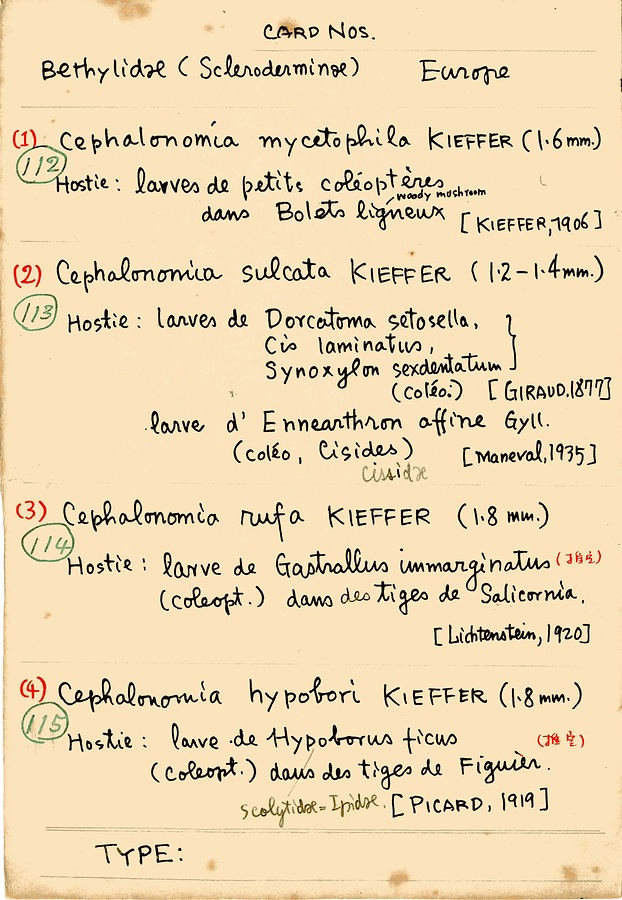 CARD NOS.
Bethylidae (Scleroderminae) Europe
(1) Cephalonomia mycetophila KIEFFER (1.6mm.)
112
Hostie: larves de petits coléoptères
woody mushroom
dans Bolets ligneux [KIEFFER, 1906]
(2) Cephalonomia sulcata KIEFFER (1.2-1.4mm.)
113
Hostie: larves de Dorcatoma setosella,
Cis laminatus,
Synoxylon sexdentatum
(coléo.) [GIRAUD.1877]
larve d' Ennearthron affine Gyll.
(coléo, Cisides) [Maneval, 1935]
Cissidae
(3) Cephalonomia rufa KIEFFER (1.8 mm.)
114
Hostie: larve de Gastrallus immarginatus (推定)
(coleopt.) dans des tiges de Salicornia.
[Lichtenstein, 1920]
(4) Cephalonomia hypobori KIEFFER (1.8mm.)
115
Hostie: larve de Hypoborus ficus (推定)
(coleopt.) dans des tiges de Figuier.
Scolytidae = Ipidae. [PICARD, 1919]
TYPE: